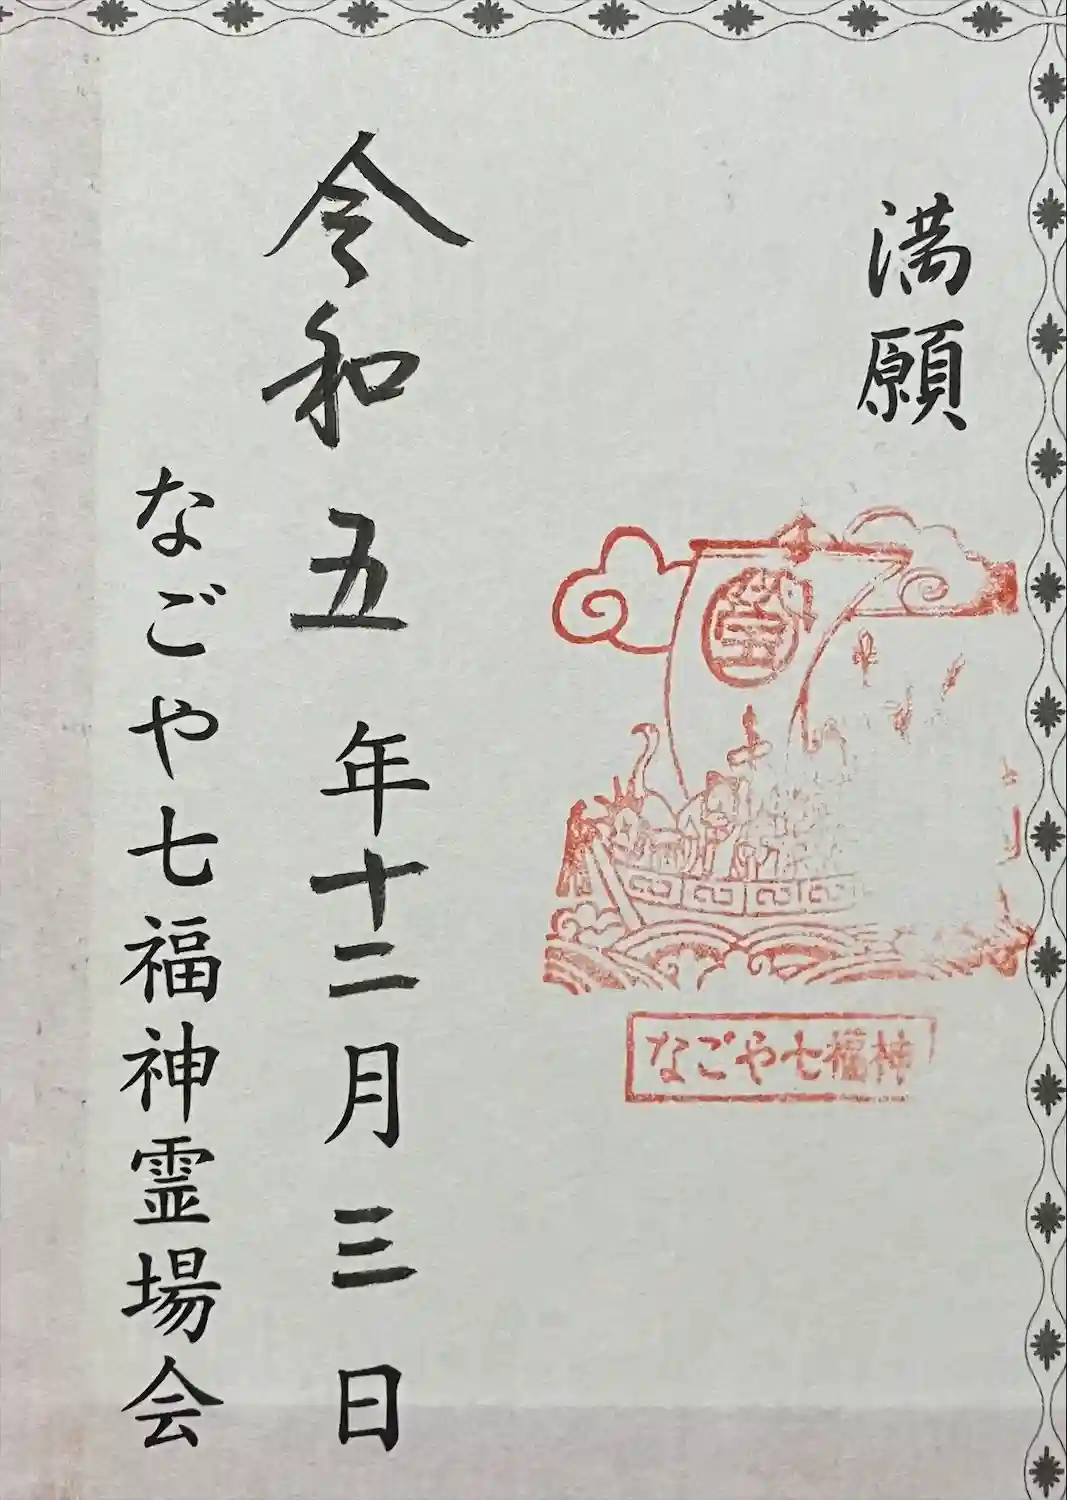 満願
なごや七福神
令和五年十二月三日
なごや七福神霊場会